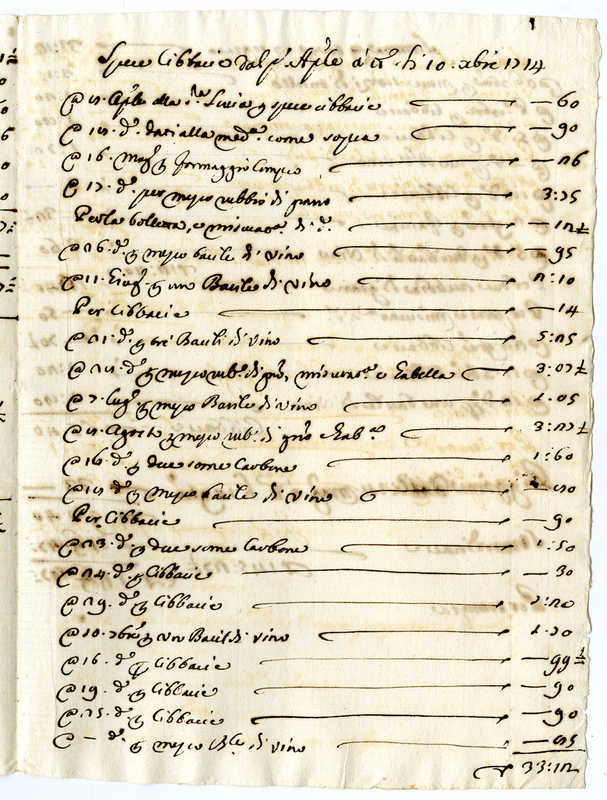 1
Spese Cibbarie dal p.º Aple à tt.º li 10. xbre 1714
Aple alla Sig.ra Lucia p spese cibbarie — 60
d.º dati alla med.ª come sopra — 90
@ 16. Mag.º p formaggio — 26
@ 17. d.º per mezzo rubbio di grano 3:25
Per la bolletta, e misurat.ª di d.º — 12½
@ 26. d.º p mezzo barile di vino — 95
@ 11. Giug.º p uno Barile di vino 2:10
Per Cibbarie — 14
@ 21. d.º p tre Barili di vino 5:25
d.º p mezzo rub.º di gño, misurat.ª e Gabella 3:07½
@ 7. Lug.º p mezzo Barile di vino 1.05
Agosto p mezzo rub.º di gño e Gab.ª 3:
@ 16. d.º p due some Carbone 1:60
d.º p mezzo barile di vino
Per Cibbarie — 90
@ 23. d.º p due some Carbone 1:50
@ 24. d.º p Cibbarie — 30
@ 29. d.º p Cibbarie
@ 10. p un Baril di vino 1.20
@ 16. d.º p Cibbarie — 99½
@ 19. d.º p Cibbarie — 90
@ 25. d.º p Cibbarie — 90
@ — d.º p mezzo B.le di vino
33:12